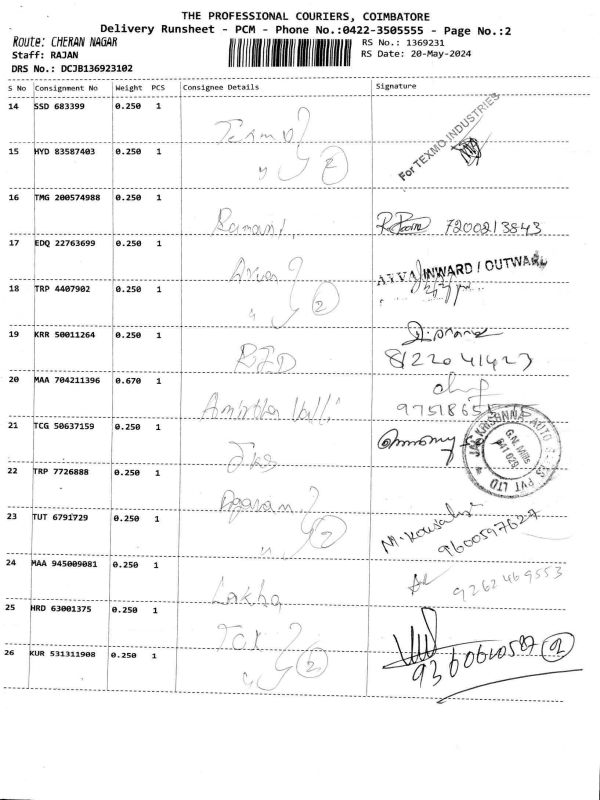 THE PROFESSIONAL COURIERS, COIMBATORE
Delivery Runsheet - PCM - Phone No.:0422-3505555 - Page No.:2
Route: CHERAN NAGAR
RS No.: 1369231
Staff: RAJAN
RS Date: 20-May-2024
DRS No.: DCJB136923102
S No Consignment No Weight PCS Consignee Details Signature
14 SSD 683399 0.250 1
Texmo
For TEXMO INDUSTRIES
15 HYD 83587403 0.250 1
" 2
16 TMG 200574988 0.250 1
Ramani 7200213843
17 EDQ 22763699 0.250 1
INWARD / OUTWARD
18 TRP 4407902 0.250 1
" 2
19 KRR 50011264 0.250 1
8122041423
20 MAA 704211396 0.670 1
21 TCG 50637159 0.250 1
JAI KRISHNAA AUTO PVT LTD
G.N. Mills
641 029
22 TRP 7726888 0.250 1
23 TUT 6791729 0.250 1
" 2
M. Kousalya
9600597627
24 MAA 945009081 0.250 1
Lakha
9262469553
25 HRD 63001375 0.250 1
26 KUR 531311908 0.250 1
" 2